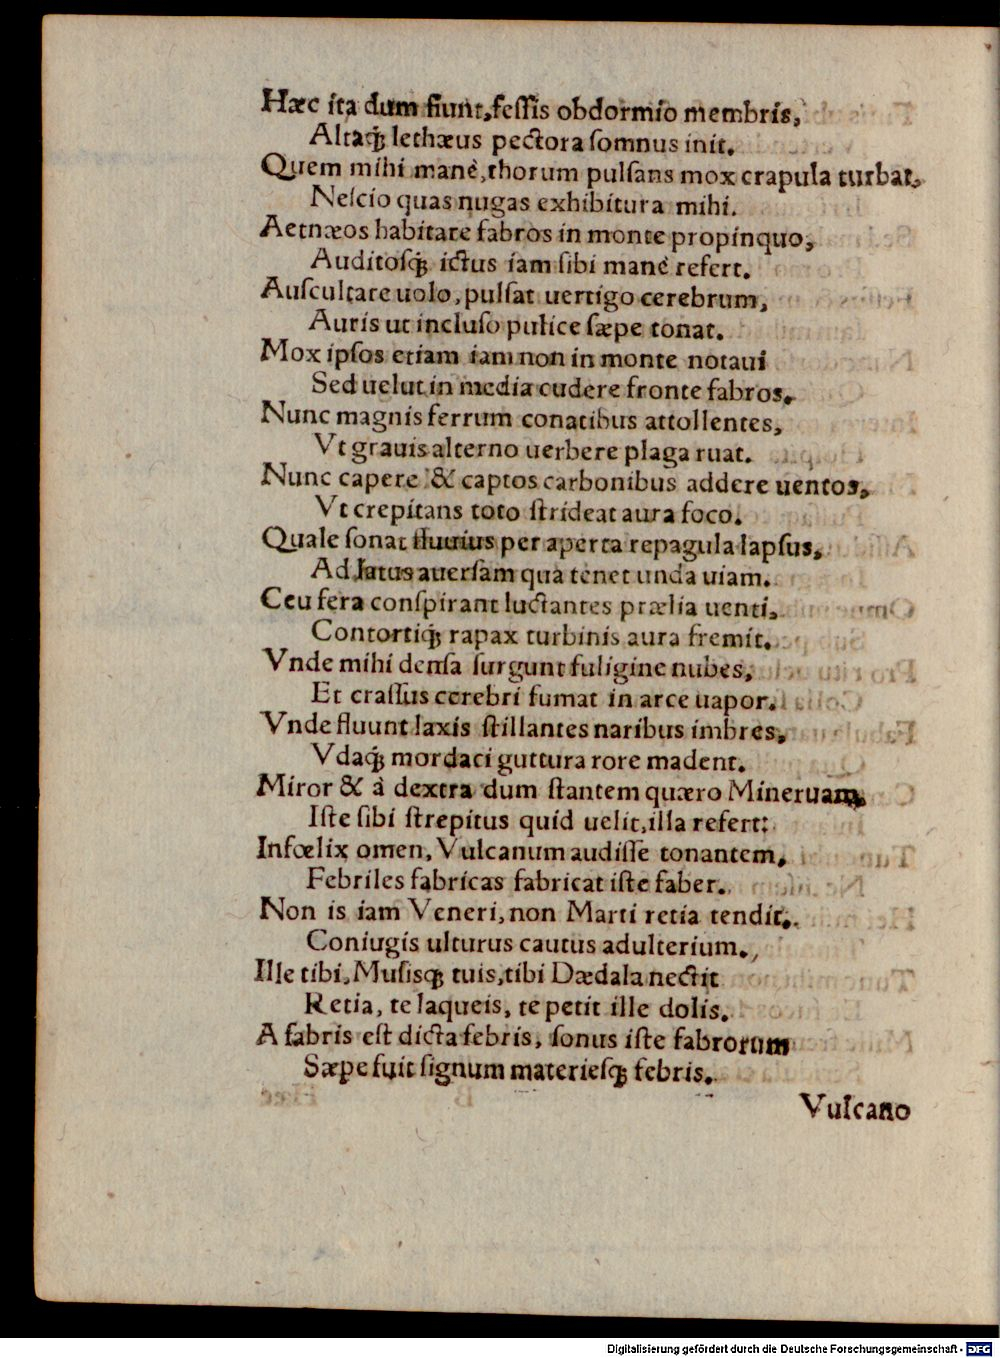 Hæc ita dum fiunt, feſſis obdormio membris,
Altaqꝫ lethæus pectora ſomnus init.
Quem mihi manè, thorum pulſans mox crapula turbat,
Neſcio quas nugas exhibitura mihi.
Aetnæos habitare fabros in monte propinquo,
Auditoſqꝫ ictus iam ſibi manè refert.
Auſcultare uolo, pulſat uertigo cerebrum,
Auris ut incluſo pulice ſæpe tonat.
Mox ipſos etiam iam non in monte notaui
Sed uelut in media cudere fronte fabros.
Nunc magnis ferrum conatibus attollentes,
Vt grauis alterno uerbere plaga ruat.
Nunc capere & captos carbonibus addere uentos,
Vt crepitans toto ſtrideat aura foco.
Quale ſonat fluuius per aperta repagula lapſus,
Ad latus auerſam qua tenet unda uiam.
Ceu fera conſpirant luctantes prælia uenti,
Contortiqꝫ rapax turbinis aura fremit.
Vnde mihi denſa ſurgunt fuligine nubes,
Et craſſus cerebri fumat in arce uapor.
Vnde fluunt laxis ſtillantes naribus imbres,
Vdaqꝫ mordaci guttura rore madent.
Miror & à dextra dum ſtantem quæro Mineruam,
Iſte ſibi ſtrepitus quid uelit, illa refert:
Infœlix omen, Vulcanum audiſſe tonantem,
Febriles fabricas fabricat iſte faber.
Non is iam Veneri, non Marti retia tendit,
Coniugis ulturus cautus adulterium.
Ille tibi, Muſisqꝫ tuis, tibi Dædala nectit
Retia, te laqueis, te petit ille dolis.
A fabris eſt dicta febris, ſonus iſte fabrorum
Sæpe fuit ſignum materieſqꝫ febris.
Vulcano
Digitalisierung gefördert durch die Deutsche Forschungsgemeinschaft - DFG